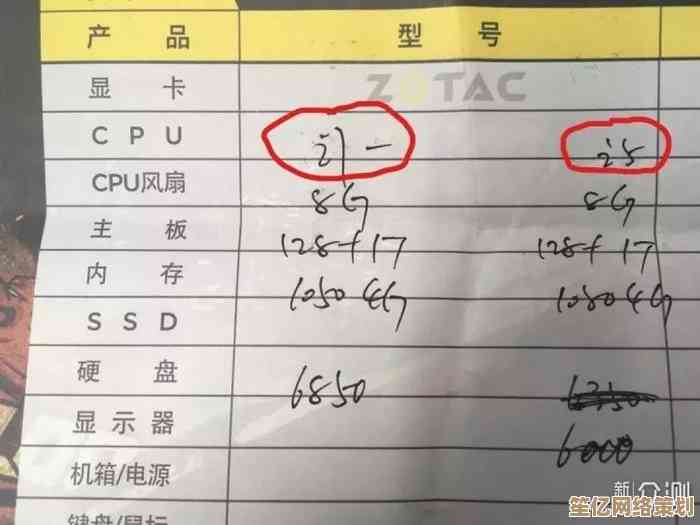 产品 型号
显卡 ZOTAC
CPU i7 一 i5
CPU风扇 8G 8G
主板 128+1T 128+1T
内存 1050 4G 1050 4G
SSD
硬盘 6850
显示器 6000
机箱/电源
键盘/鼠标
新 众测
笙亿网络策划